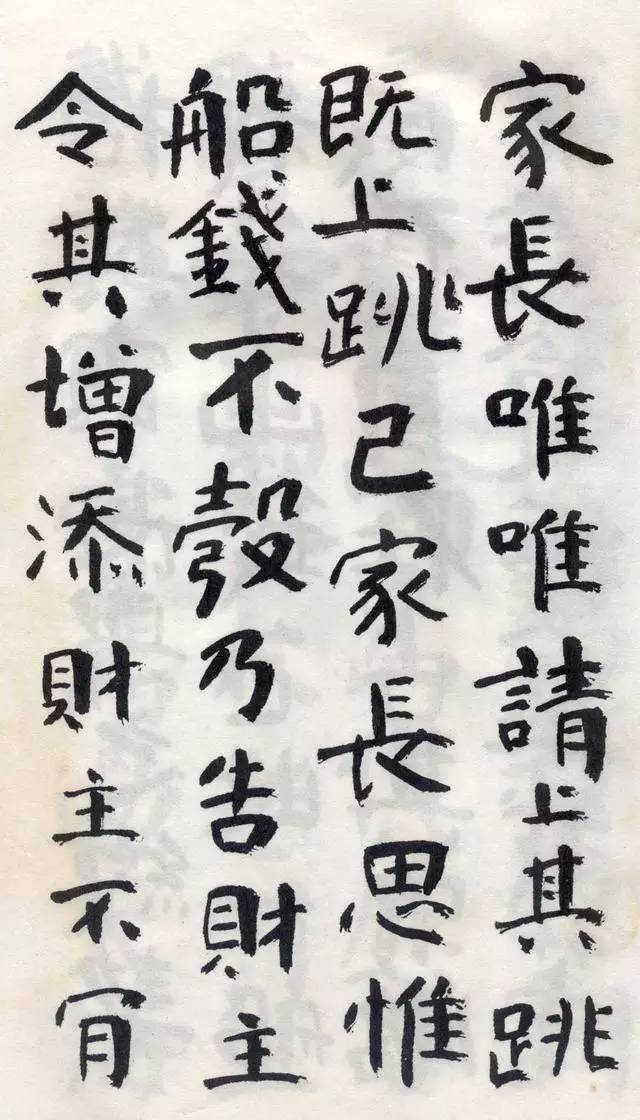 家長唯唯請上其跳
既上跳已家長思惟
船錢不彀乃告財主
令其增添財主不肎